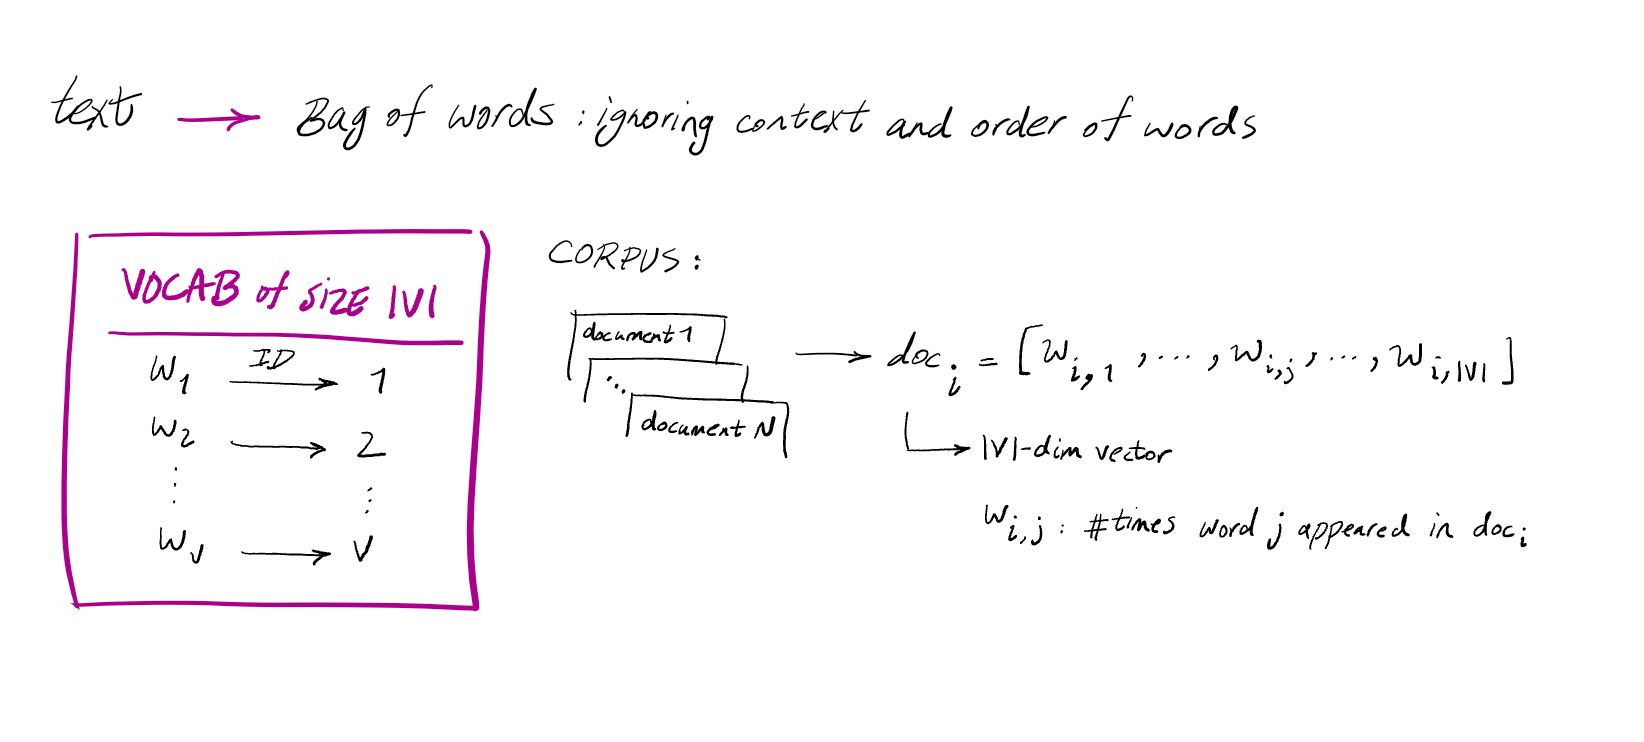 text → Bag of words : ignoring context and order of words
VOCAB of SIZE |V|
W1 ID → 1
W2 → 2
⋮ ⋮
WV → V
CORPUS :
document 1
...
document N
→ doc i = [ W i,1 , ... , W i,j , ... , W i,|V| ]
→ |V|-dim vector
W i,j : #times word j appeared in doc i